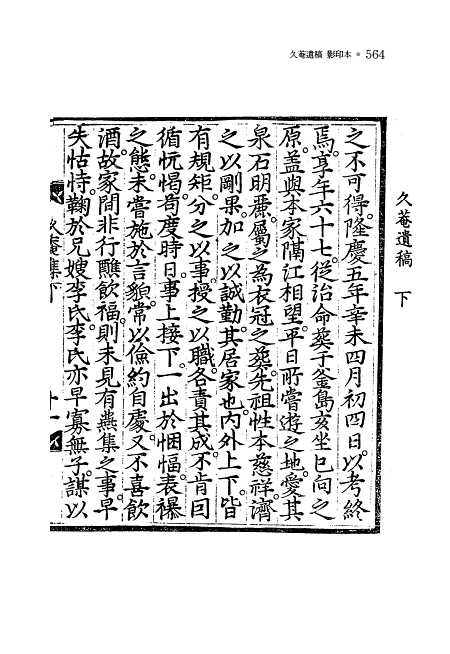 久菴遺稿 影印本 • 564
久菴遺稿 下
之不可得隆慶五年辛未四月初四日以考終
焉享年六十七從治命葬于釜島亥坐巳向之
原盖與本家隔江相望平日所嘗遊之地愛其
泉石明麗屬之為衣冠之葬先祖性本慈祥濟
之以剛果加之以誠勤其居家也內外上下皆
有規矩分之以事授之以職各責其成不肯因
循忨愒苟度時日事上接下一出於悃愊表襮
之態未嘗施於言貌常以儉約自處又不喜飲
酒故家間非行醮飲福則未見有燕集之事早
失怙恃鞠於兄嫂李氏李氏亦早寡無子謀以
久菴集下 十一